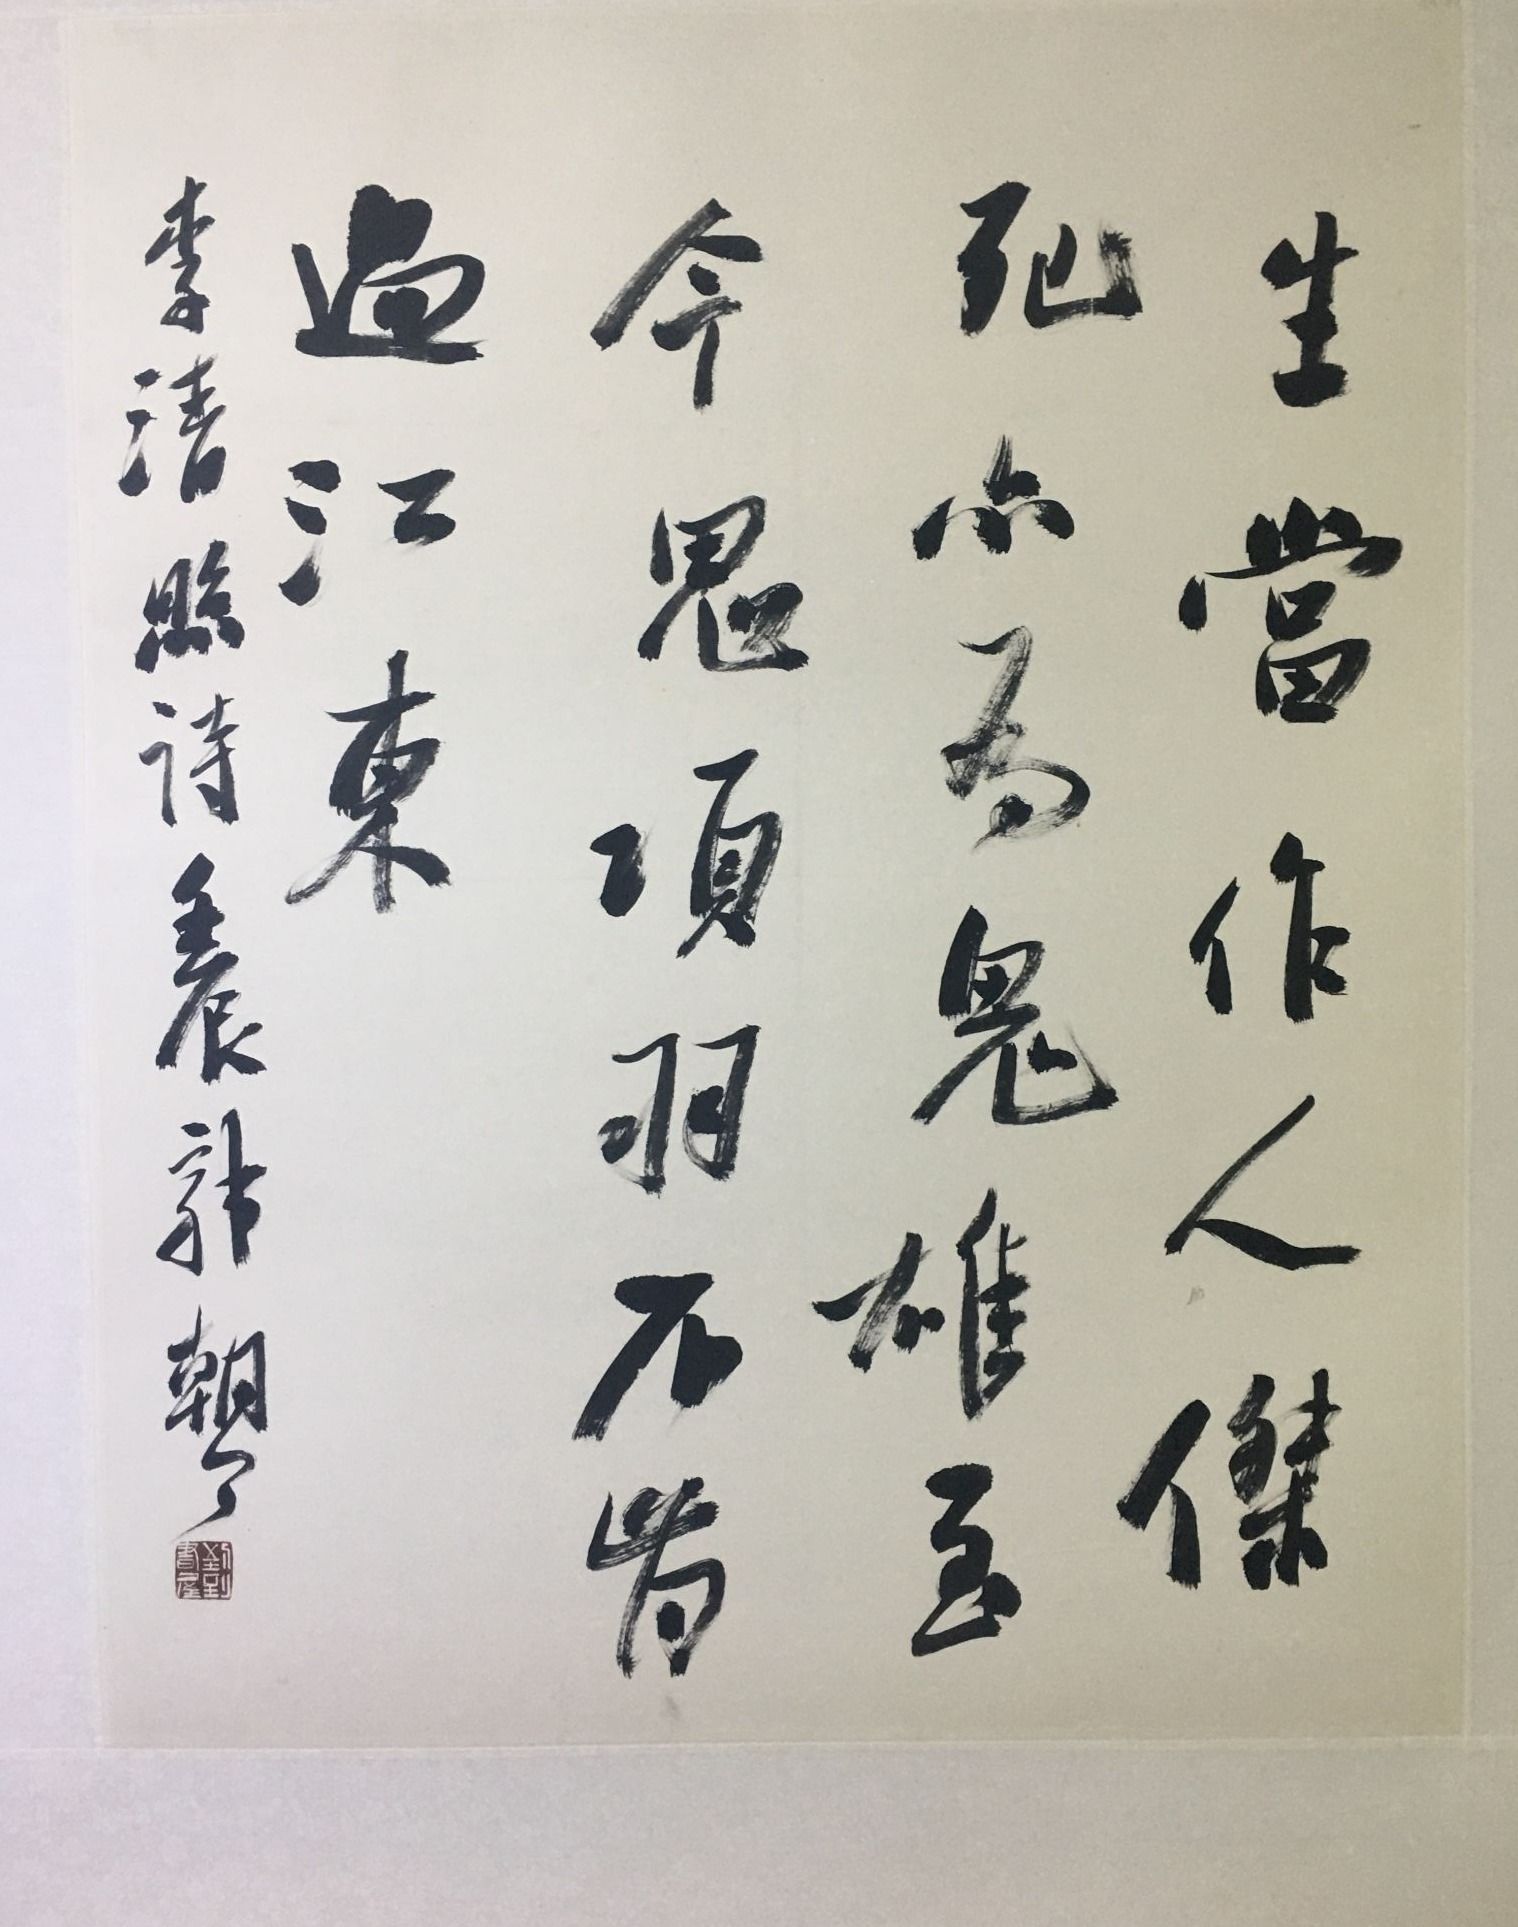 生當作人傑
死亦為鬼雄至
今思項羽不肯
過江東
李清照詩